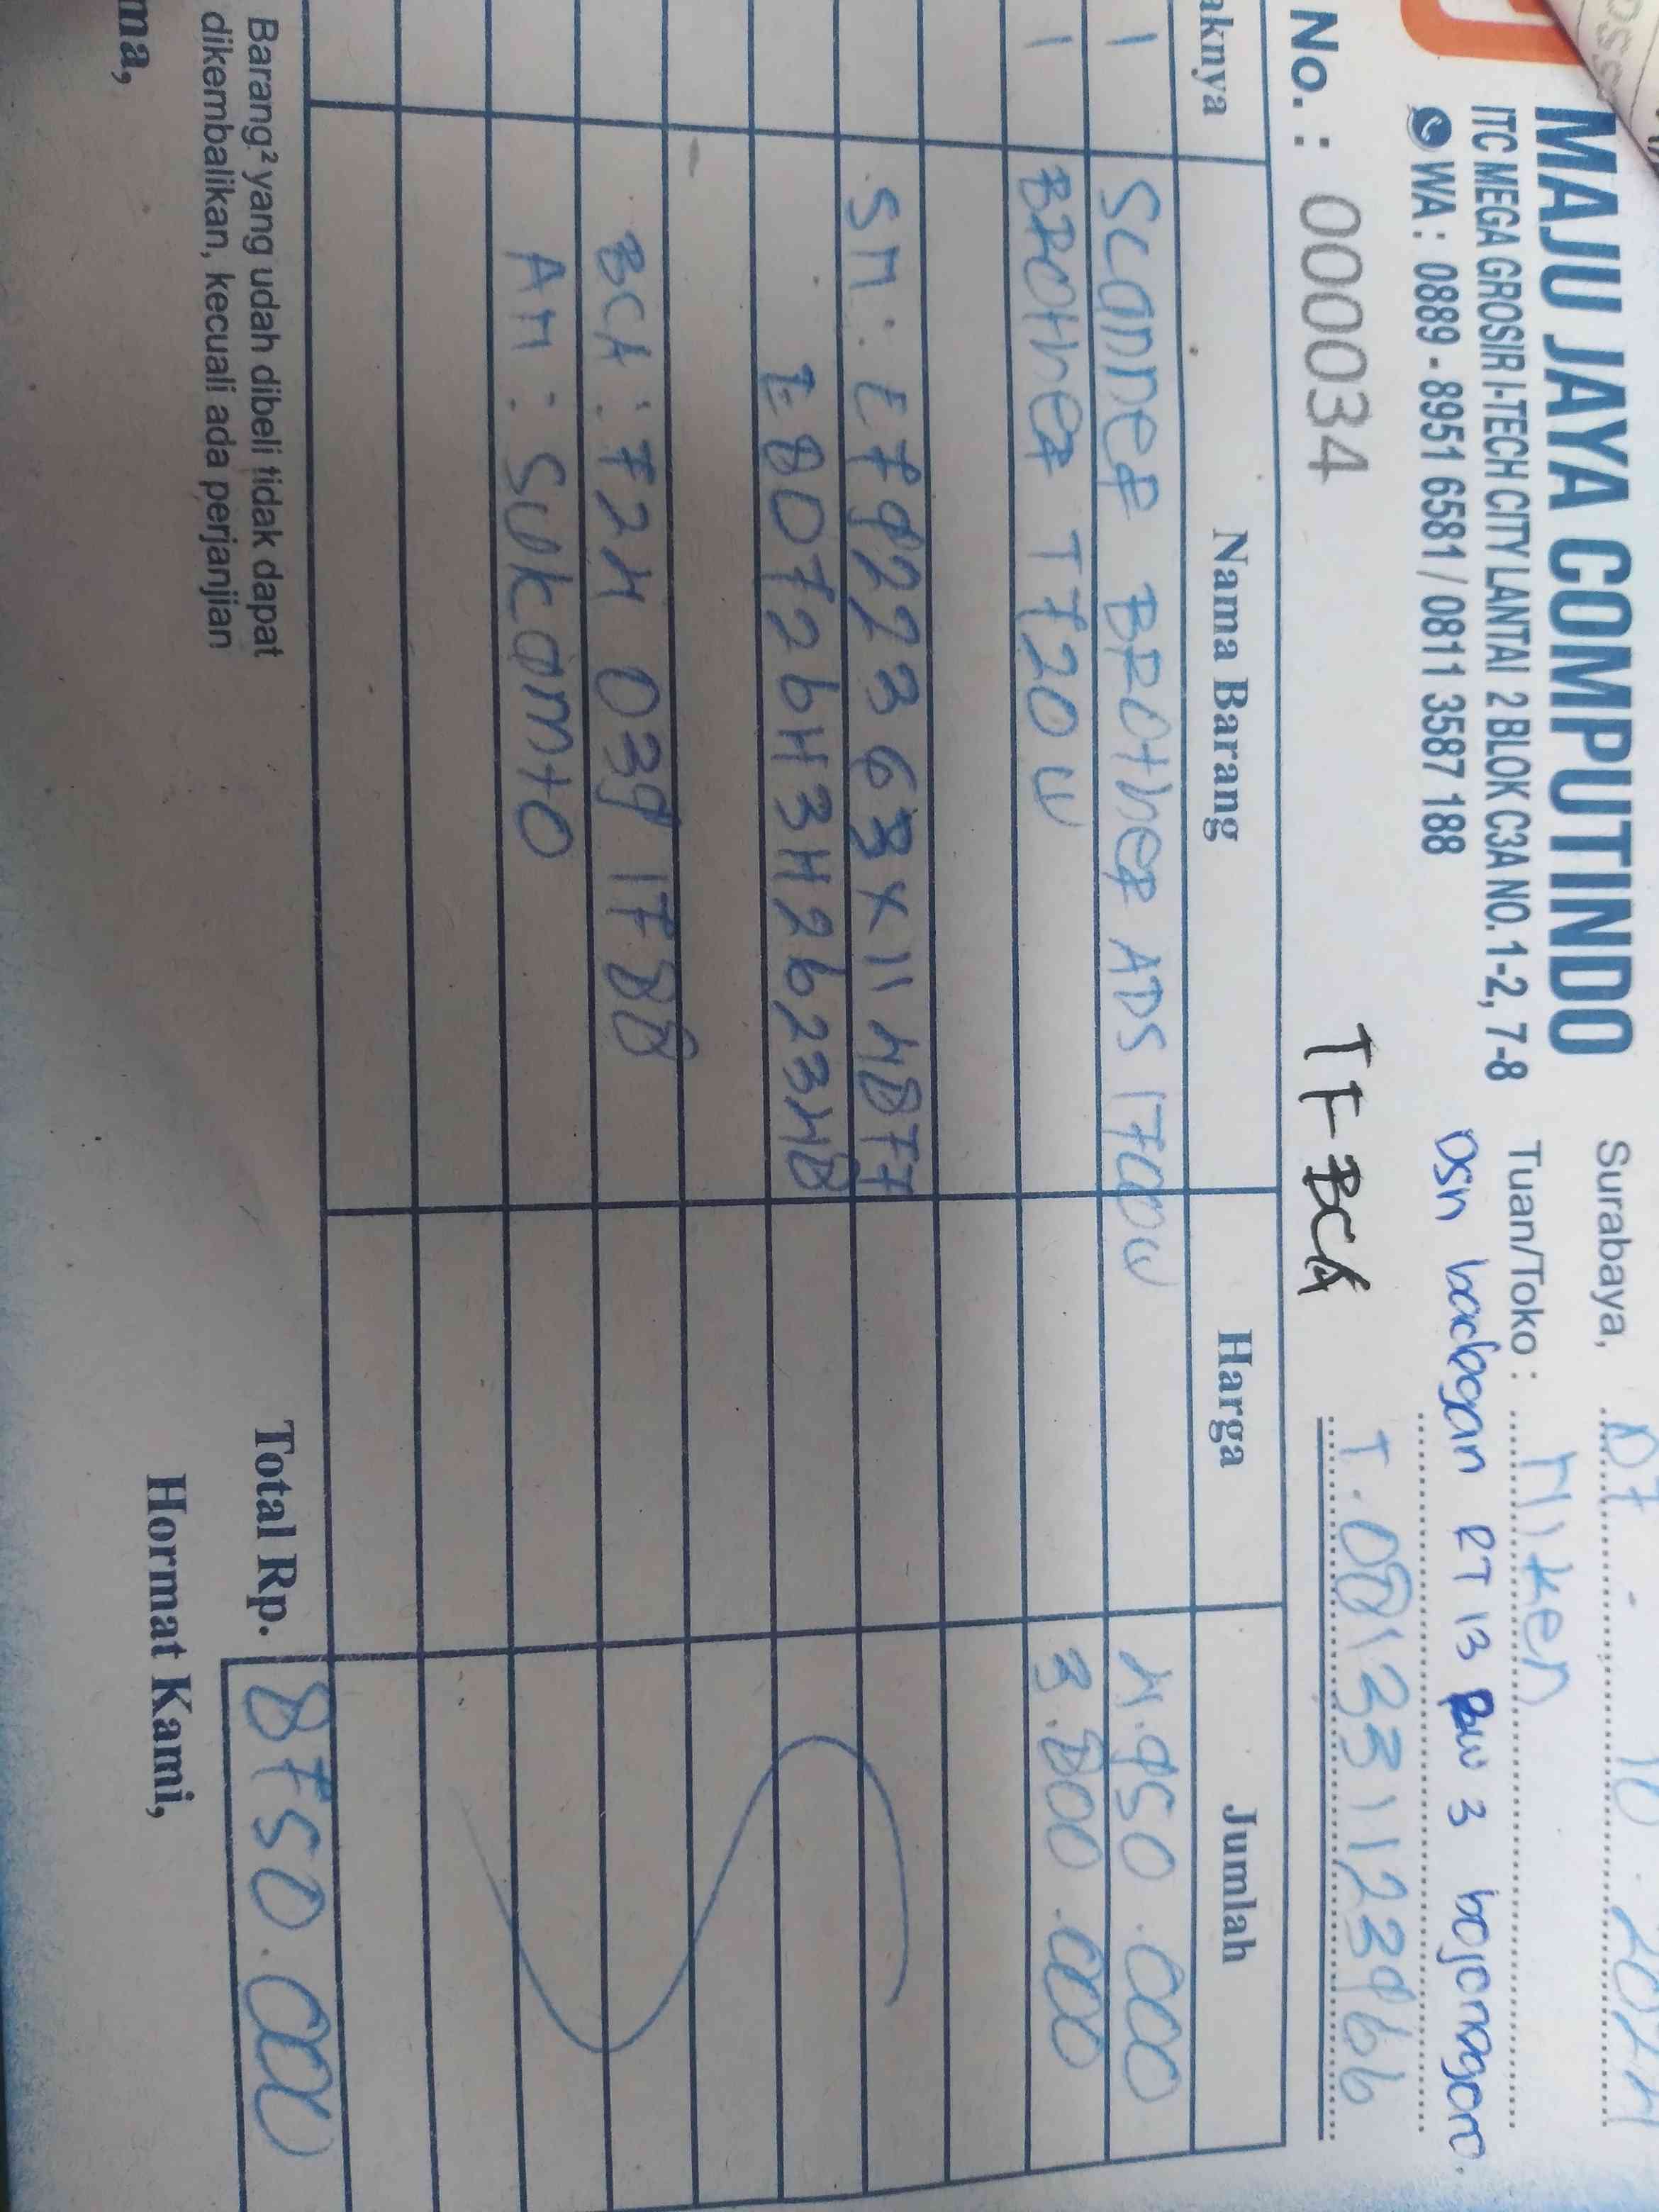 MAJU JAYA COMPUTINDO
ITC MEGA GROSIR I-TECH CITY LANTAI 2 BLOK C3A NO. 1-2, 7-8
WA : 0889 - 8951 6581 / 0811 3587 188
Surabaya, 07 - 10 - 2024
Tuan/Toko : Niken
Dsn badegan RT 13 RW 3 bojonegoro.
T. 081331123966
No. : 000034
TF BCA
aknya Nama Barang Harga Jumlah
1 Scanner Brother ADS 1700W 4.950.000
1 Brother T720W 3.800.000
SN : E79223 G3X114877
E 80726H3H262348
BCA : 724 039 1788
AN : Sukamto
Barang² yang udah dibeli tidak dapat
dikembalikan, kecuali ada perjanjian
Total Rp. 8750.000
ma,
Hormat Kami,